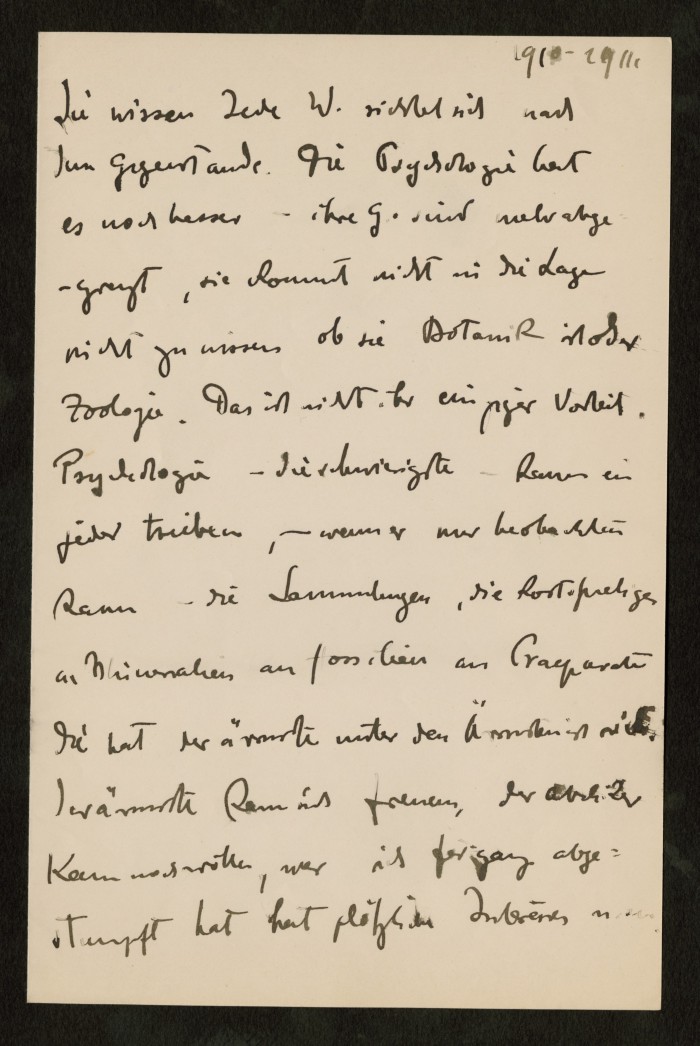 1910-1911
Sie wissen Jede W. richtet sich nach
dem Gegenstande. Die Psychologie hat
es noch besser - ihre G. sind mehr abge
-grenzt, sie kommt nicht in die Lage
nicht zu wissen ob sie Botanik ist oder
Zoologie. Das ist nicht ihr einziger Vorteil.
Psychologie - die schwierigste - kann ein
jeder treiben, - wenn er nur beobachten
kann - die Sammlungen, die kostspieligen
an Mineralien an fossilien an Praeparate
Die hat der ärmste unter den Ärmsten
der ärmste kann sich freuen, der
kann noch, wer sich ganz abge=
stumpft hat hat plötzlich Interesse